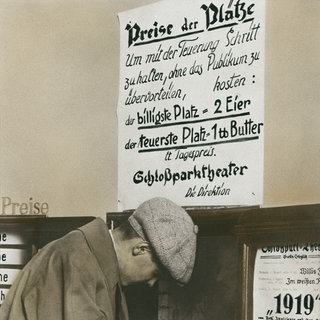 Preise der Plätze
Um mit der Teuerung Schritt
zu halten, ohne das Publikum zu
übervorteilen, kosten:
der billigste Platz = 2 Eier
der teuerste Platz = 1 ℔ Butter
lt Tagespreis.
Schloßparktheater
Die Direktion
Preise
"1919"